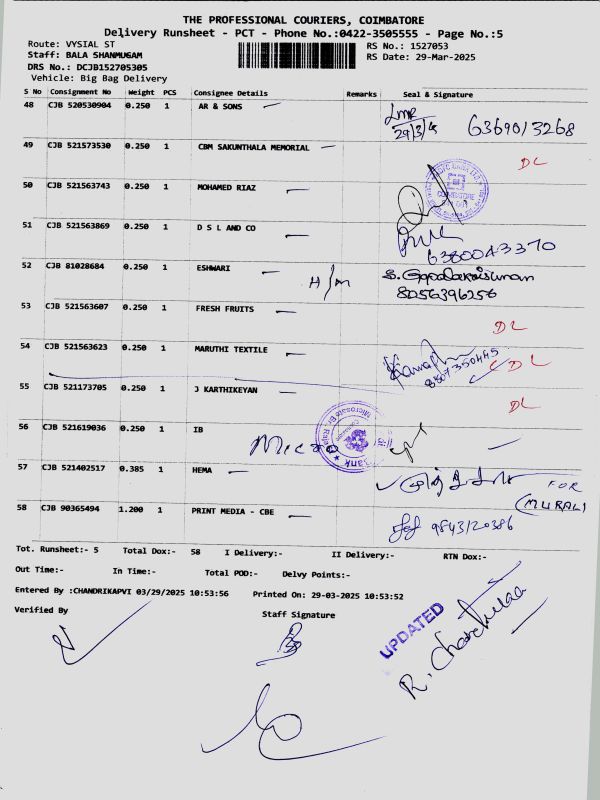 THE PROFESSIONAL COURIERS, COIMBATORE
Delivery Runsheet - PCT - Phone No.:0422-3505555 - Page No.:5
Route: VYSIAL ST
RS No.: 1527053
Staff: BALA SHANMUGAM
RS Date: 29-Mar-2025
DRS No.: DCJB152705305
Vehicle: Big Bag Delivery
S No Consignment No Weight PCS Consignee Details Remarks Seal & Signature
48 CJB 520530904 0.250 1 AR & SONS 29/3/25 6369013268
49 CJB 521573530 0.250 1 CBM SAKUNTHALA MEMORIAL DL
50 CJB 521563743 0.250 1 MOHAMED RIAZ
51 CJB 521563869 0.250 1 D S L AND CO 6380043370
52 CJB 81028684 0.250 1 ESHWARI S. Gopalakrishnan
8056396256
53 CJB 521563607 0.250 1 FRESH FRUITS DL
54 CJB 521563623 0.250 1 MARUTHI TEXTILE 8507350445 DL
55 CJB 521173705 0.250 1 J KARTHIKEYAN DL
56 CJB 521619036 0.250 1 IB Micro
57 CJB 521402517 0.385 1 HEMA FOR
(MURALI)
58 CJB 90365494 1.200 1 PRINT MEDIA - CBE 9843120386
Tot. Runsheet:- 5 Total Dox:- 58 I Delivery:- II Delivery:- RTN Dox:-
Out Time:- In Time:- Total POD:- Delvy Points:-
Entered By :CHANDRIKAPVI 03/29/2025 10:53:56 Printed On: 29-03-2025 10:53:52
Verified By Staff Signature
UPDATED